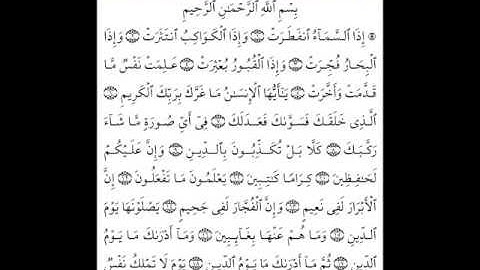 بِسْمِ ٱللَّهِ ٱلرَّحْمَـٰنِ ٱلرَّحِيمِ
إِذَا ٱلسَّمَآءُ ٱنفَطَرَتْ وَإِذَا ٱلْكَوَاكِبُ ٱنتَثَرَتْ وَإِذَا
ٱلْبِحَارُ فُجِّرَتْ وَإِذَا ٱلْقُبُورُ بُعْثِرَتْ عَلِمَتْ نَفْسٌ مَّا
قَدَّمَتْ وَأَخَّرَتْ يَـٰٓأَيُّهَا ٱلْإِنسَـٰنُ مَا غَرَّكَ بِرَبِّكَ ٱلْكَرِيمِ
ٱلَّذِى خَلَقَكَ فَسَوَّىٰكَ فَعَدَلَكَ فِىٓ أَىِّ صُورَةٍ مَّا شَآءَ
رَكَّبَكَ كَلَّا بَلْ تُكَذِّبُونَ بِٱلدِّينِ وَإِنَّ عَلَيْكُمْ
لَحَـٰفِظِينَ كِرَامًا كَـٰتِبِينَ يَعْلَمُونَ مَا تَفْعَلُونَ إِنَّ
ٱلْأَبْرَارَ لَفِى نَعِيمٍ وَإِنَّ ٱلْفُجَّارَ لَفِى جَحِيمٍ يَصْلَوْنَهَا يَوْمَ
ٱلدِّينِ وَمَا هُمْ عَنْهَا بِغَآئِبِينَ وَمَآ أَدْرَىٰكَ مَا يَوْمُ
ٱلدِّينِ ثُمَّ مَآ أَدْرَىٰكَ مَا يَوْمُ ٱلدِّينِ يَوْمَ لَا تَمْلِكُ نَفْسٌ